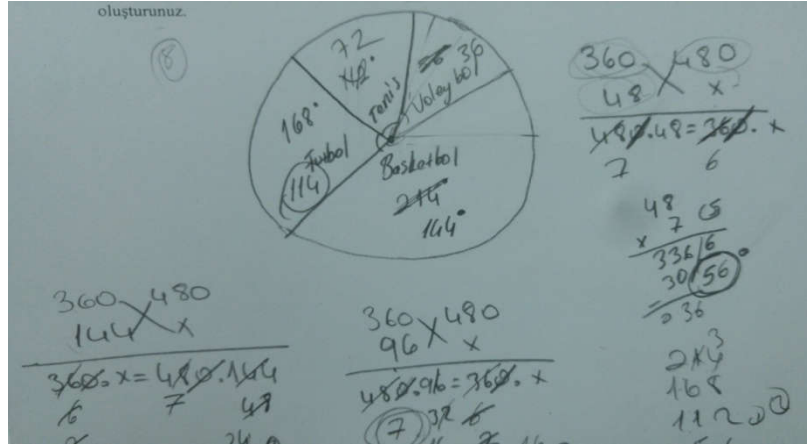 oluşturunuz.
8
72
36
Tenis
Voleybol
168°
Futbol
114
Basketbol
214
144°
360 480
48 x
480.48=360.x
7 6
48
x 7
336 6
30 56°
36
360 480
144 x
360.x=480.144
6 7 48
360 480
96 x
480.96=360.x
7 32 6
214
168
112